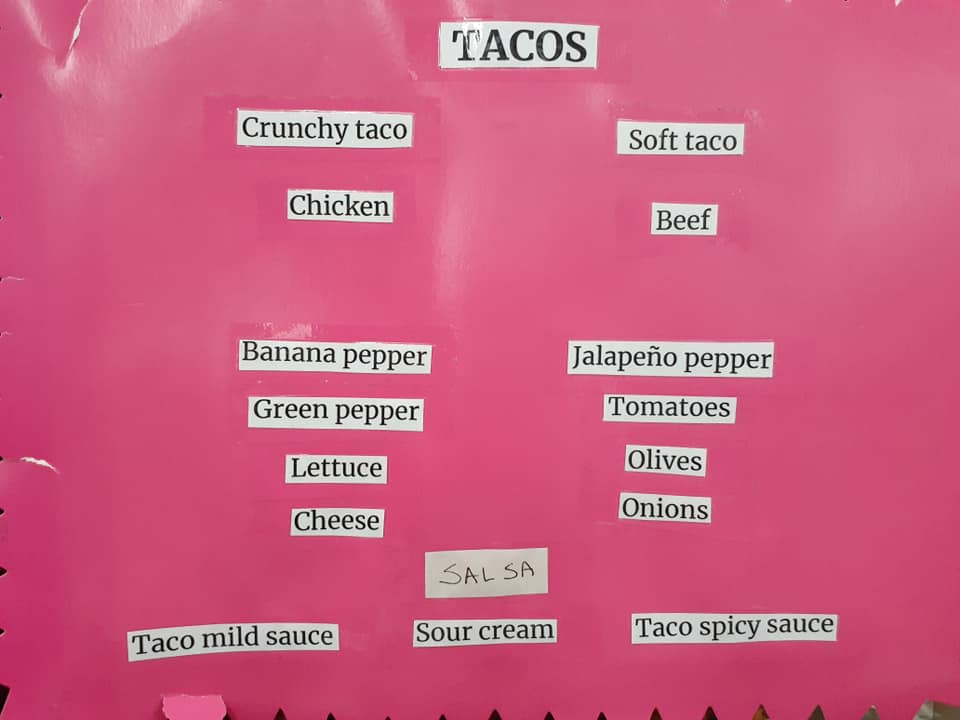 TACOS
Crunchy taco
Soft taco
Chicken
Beef
Banana pepper
Jalapeño pepper
Green pepper
Tomatoes
Lettuce
Olives
Cheese
Onions
SALSA
Taco mild sauce
Sour cream
Taco spicy sauce